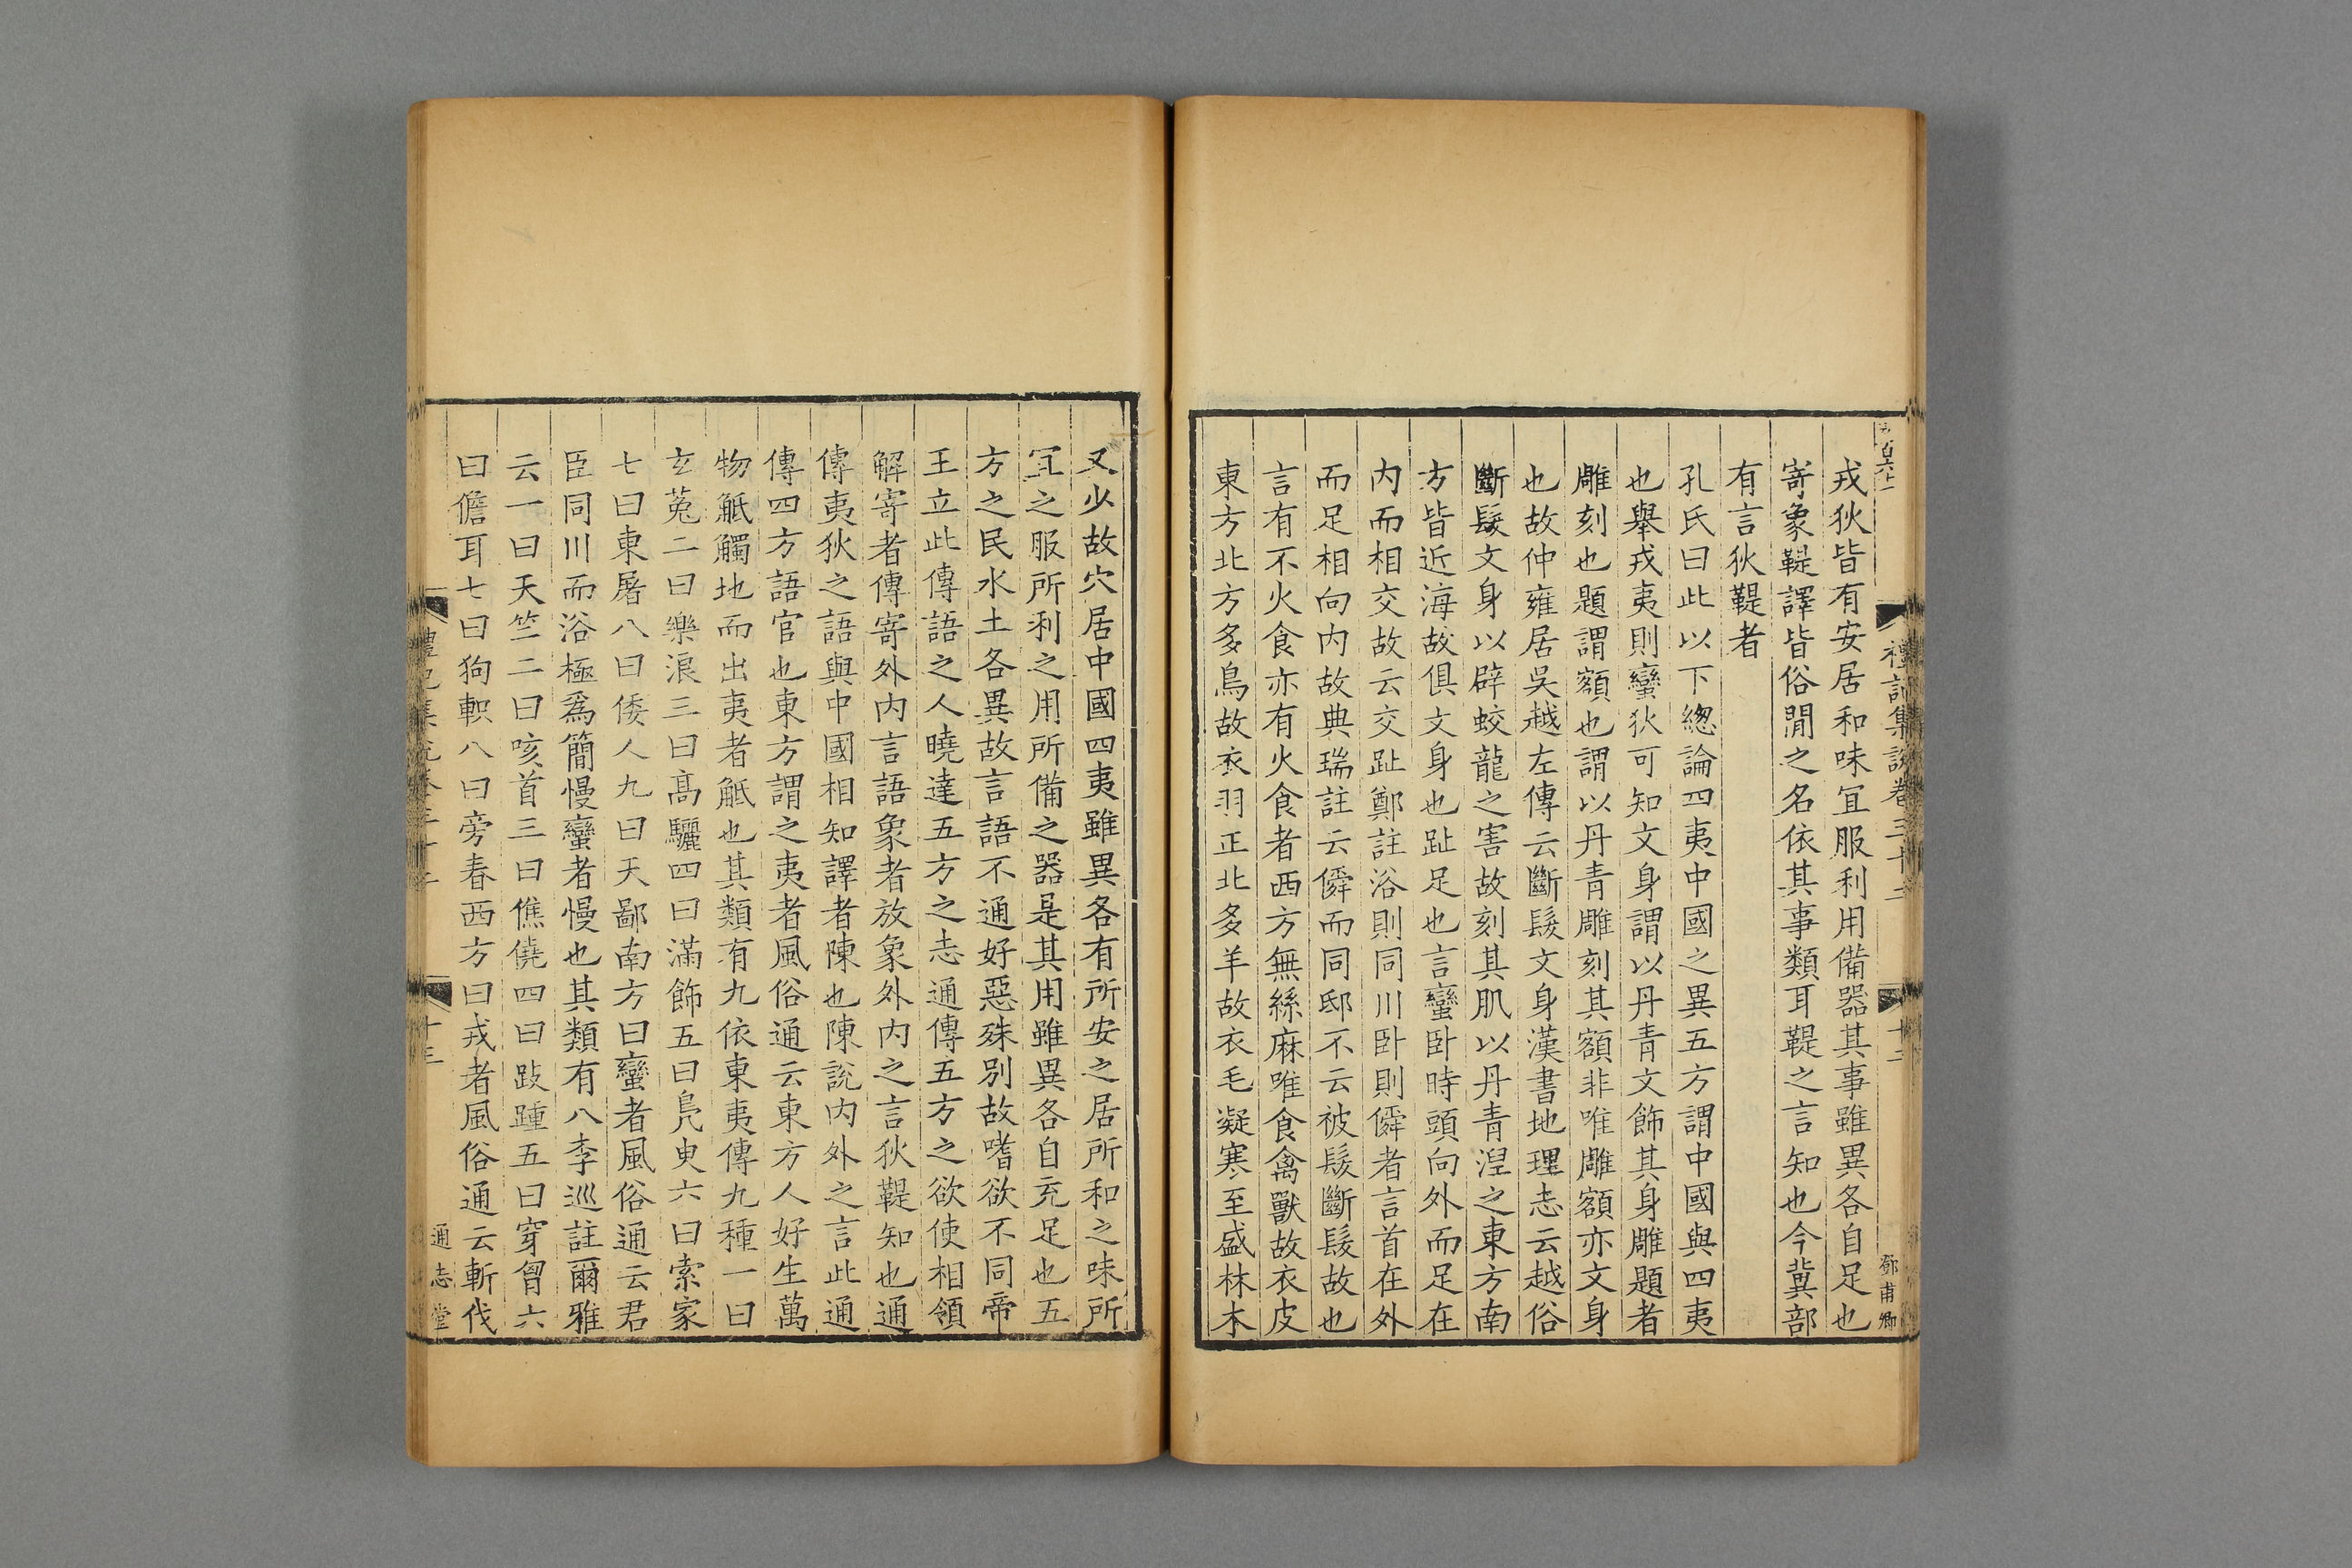 戎狄皆有安居和味宜服利用備器其事雖異各自足也
寄象鞮譯皆俗閒之名依其事類耳鞮之言知也今冀部
有言狄鞮者
孔氏曰此以下緫論四夷中國之異五方謂中國與四夷
也舉戎夷則蠻狄可知文身謂以丹青文飾其身雕題者
雕刻也題謂額也謂以丹青雕刻其額非唯雕額亦文身
也故仲雍居吳越左傳云斷髮文身漢書地理志云越俗
斷髮文身以辟蛟龍之害故刻其肌以丹青湼之東方南
方皆近海故俱文身也趾足也言蠻卧時頭向外而足在
内而相交故云交趾鄭註浴則同川卧則僢者言首在外
而足相向内故典瑞註云僢而同邸不云被髮斷髮故也
言有不火食亦有火食者西方無絲麻唯食禽獸故衣皮
東方北方多鳥故衣羽正北多羊故衣毛凝寒至盛林木
又少故穴居中國四夷雖異各有所安之居所和之味所
宜之服所利之用所備之器是其用雖異各自充足也五
方之民水土各異故言語不通好惡殊別故嗜欲不同帝
王立此傳語之人曉達五方之志通傳五方之欲使相領
解寄者傳寄外内言語象者放象外内之言狄鞮知也通
傳夷狄之語與中國相知譯者陳也陳說内外之言此通
傳四方語官也東方謂之夷者風俗通云東方人好生萬
物觝觸地而出夷者觝也其類有九依東夷傳九種一曰
玄菟二曰樂浪三曰高驪四曰滿飾五曰鳧臾六曰索家
七曰東屠八曰倭人九曰天鄙南方曰蠻者風俗通云君
臣同川而浴極爲簡慢蠻者慢也其類有八李巡註爾雅
云一曰天竺二曰咳首三曰僬僥四曰跂踵五曰穿胷六
曰儋耳七曰狗軹八曰旁春西方曰戎者風俗通云斬伐
禮記集說卷三十
十三
通志堂
禮記集說卷三十
鄧甫卿